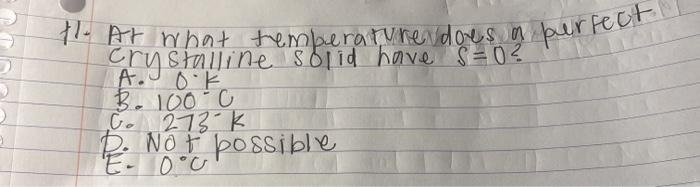 11. At what temperature does a perfect
crystalline solid have S=0?
A. 0°K
B. 100°C
C. 273°K
D. Not possible
E. 0°C